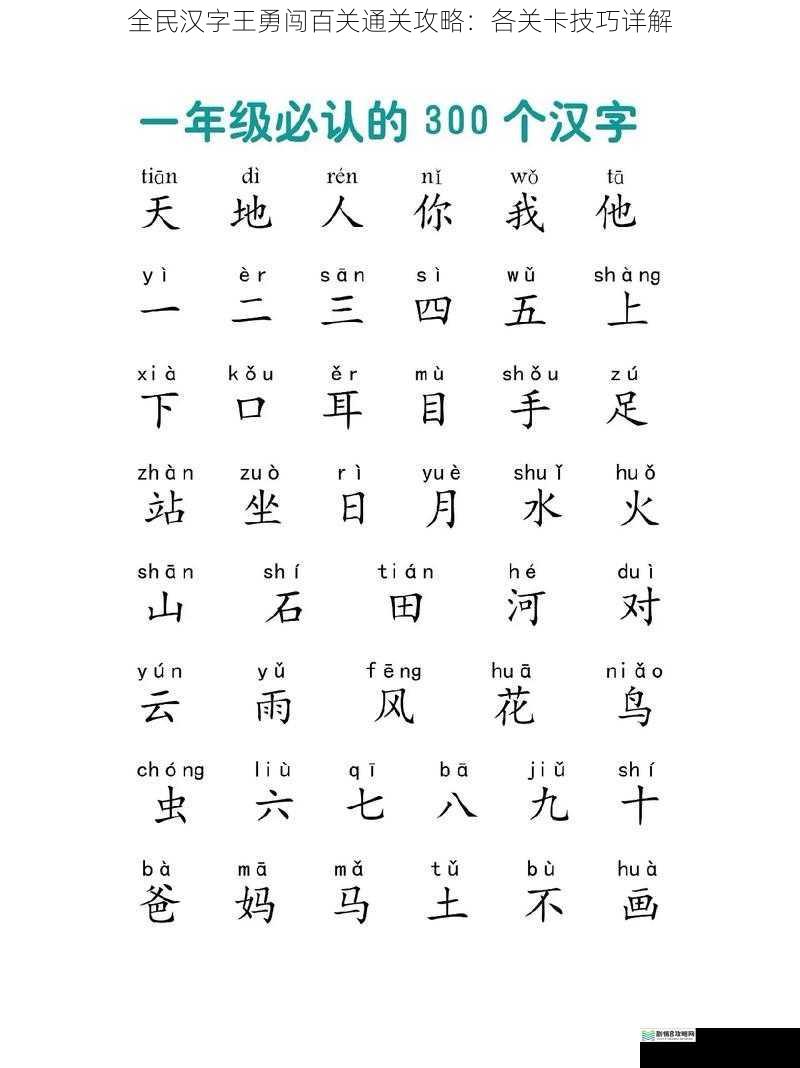 全民汉字王勇闯百关通关攻略：各关卡技巧详解
一年级必认的 300 个汉字
tiān dì rén nǐ wǒ tā
天 地 人 你 我 他
yì èr sān sì wǔ shàng
一 二 三 四 五 上
xià kǒu ěr mù shǒu zú
下 口 耳 目 手 足
zhàn zuò rì yuè shuǐ huǒ
站 坐 日 月 水 火
shān shí tián hé duì
山 石 田 河 对
yún yǔ fēng huā niǎo
云 雨 风 花 鸟
chóng liù qī bā jiǔ shí
虫 六 七 八 九 十
bà mā mǎ tǔ bù huà
爸 妈 马 土 不 画